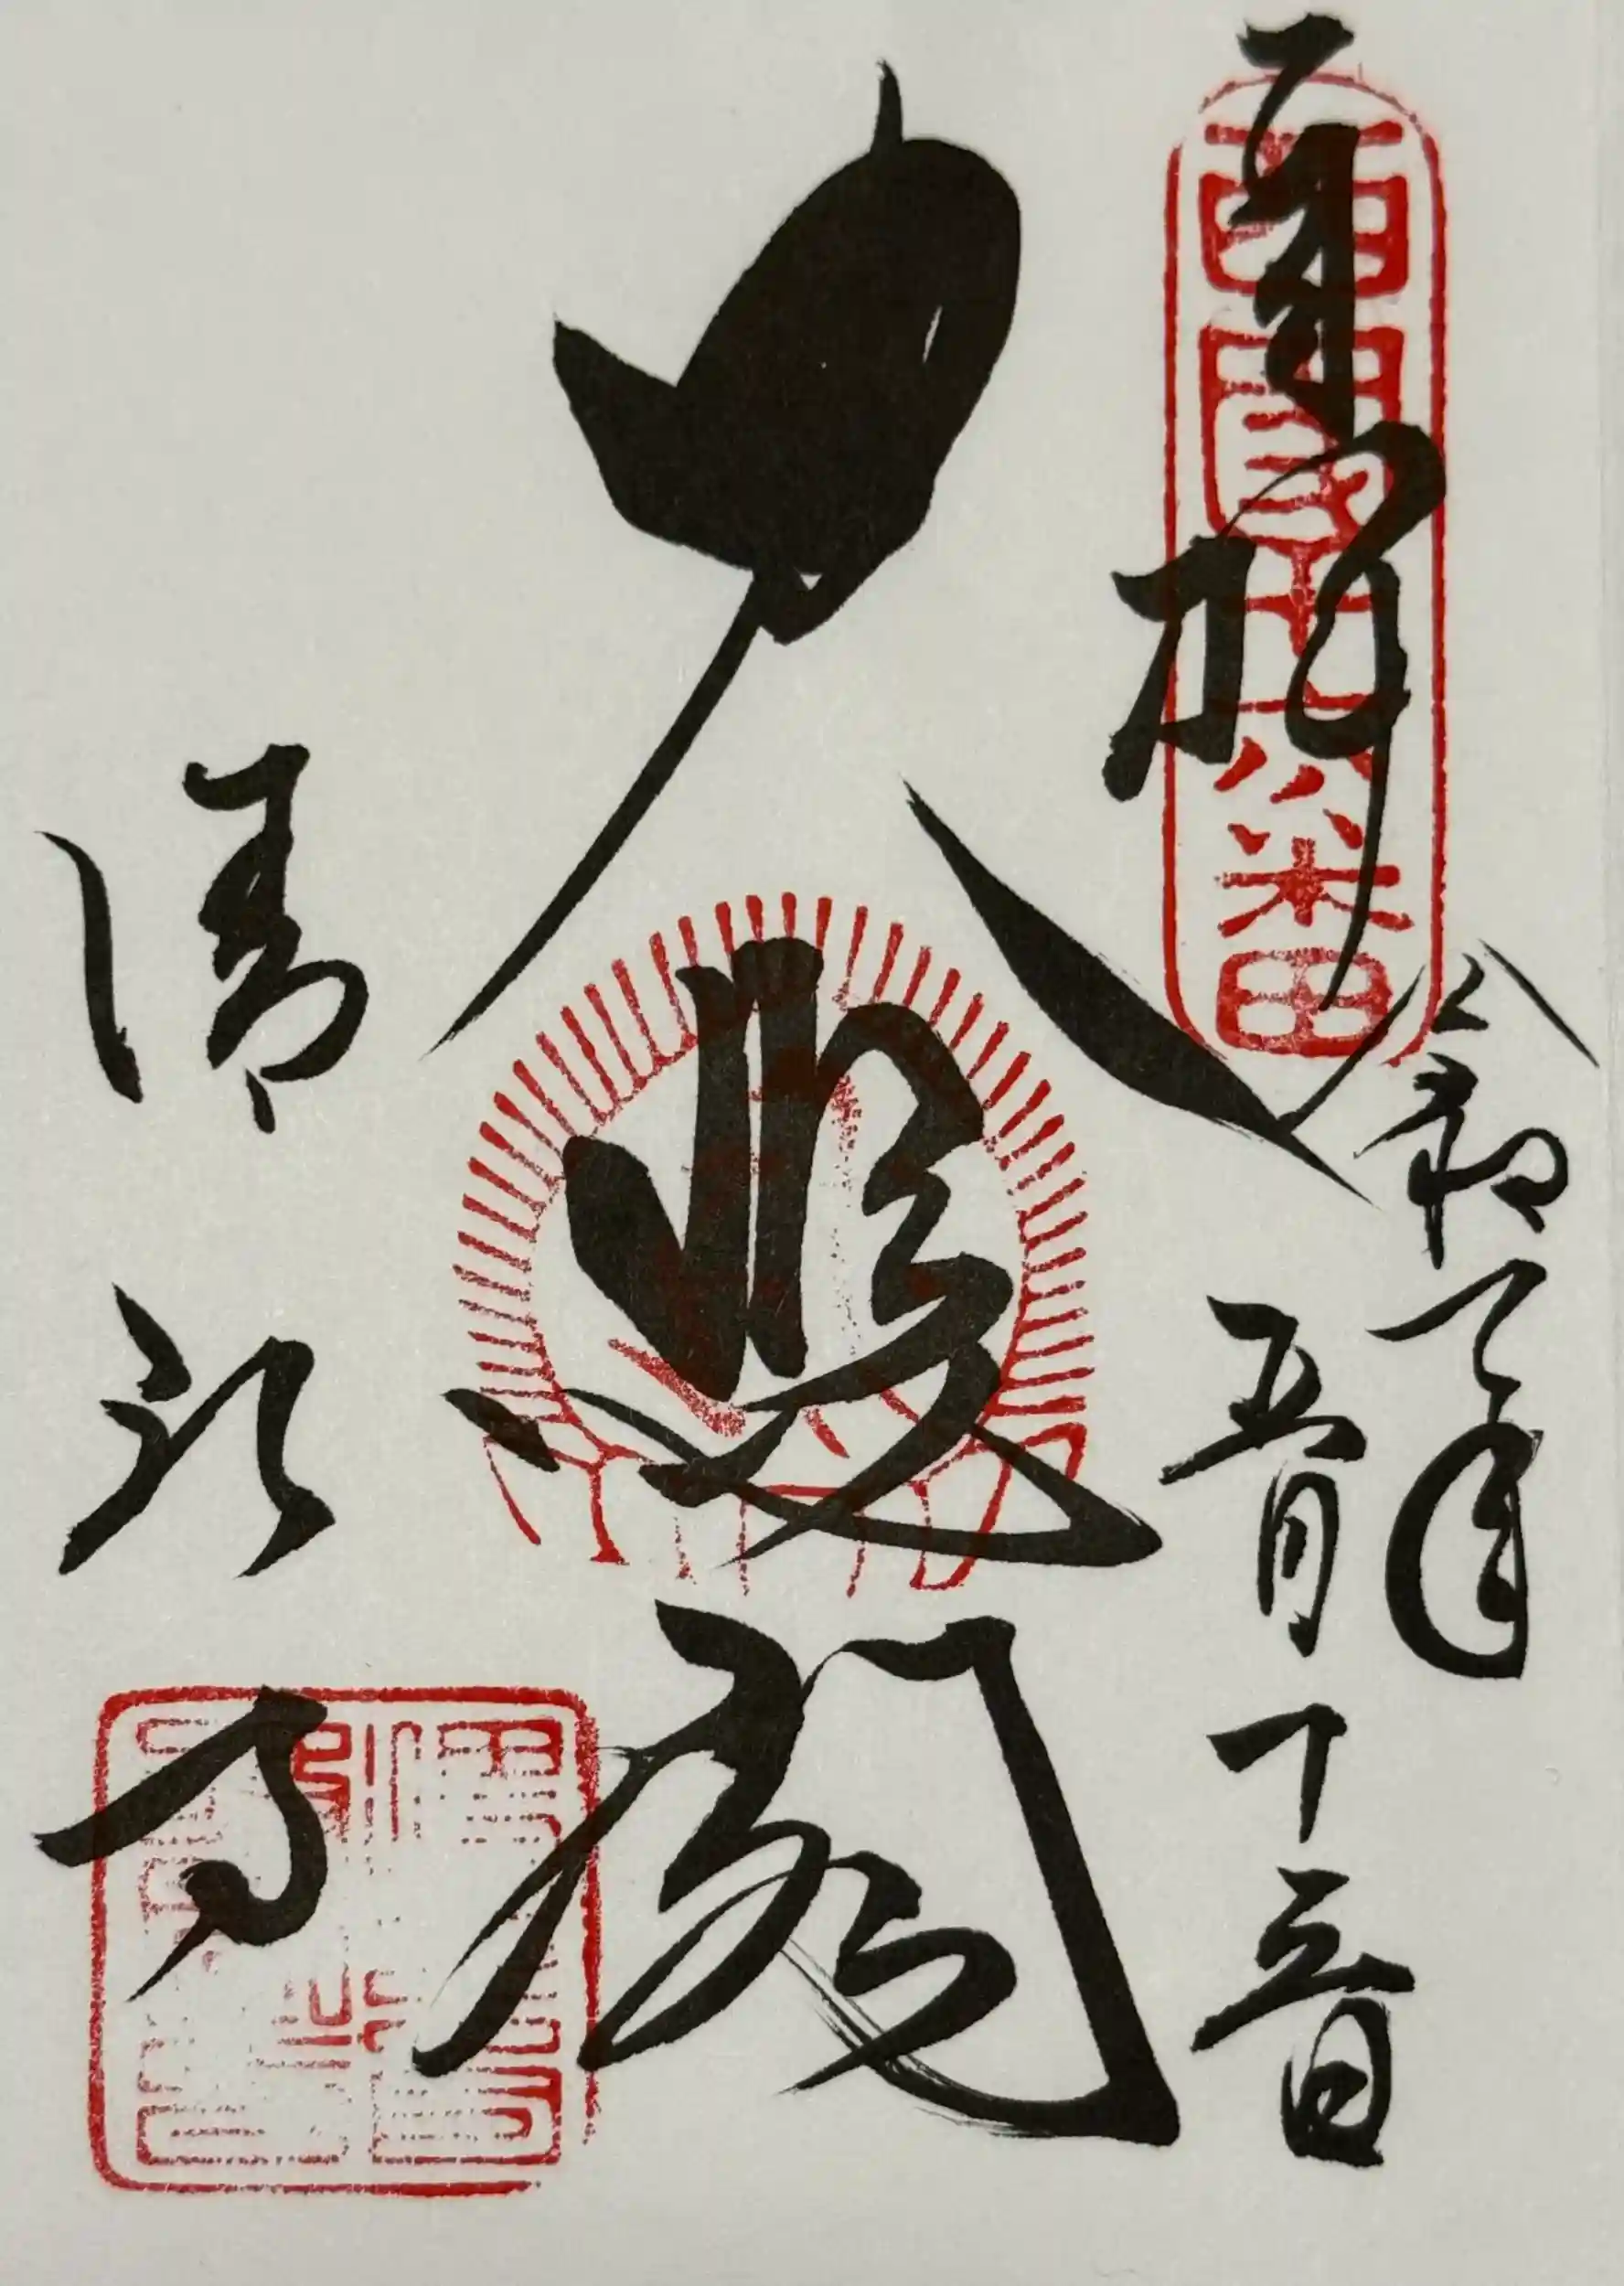 奉拝
西国十六番
令和
年
五月十三日
大悲閣
清水寺